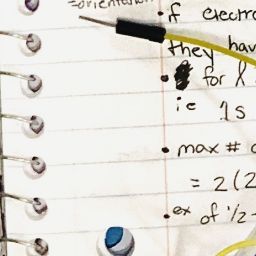 =orientation
• if electro
they hav
• for l
ie 1s
• max #
= 2(2
• ex of 1/2